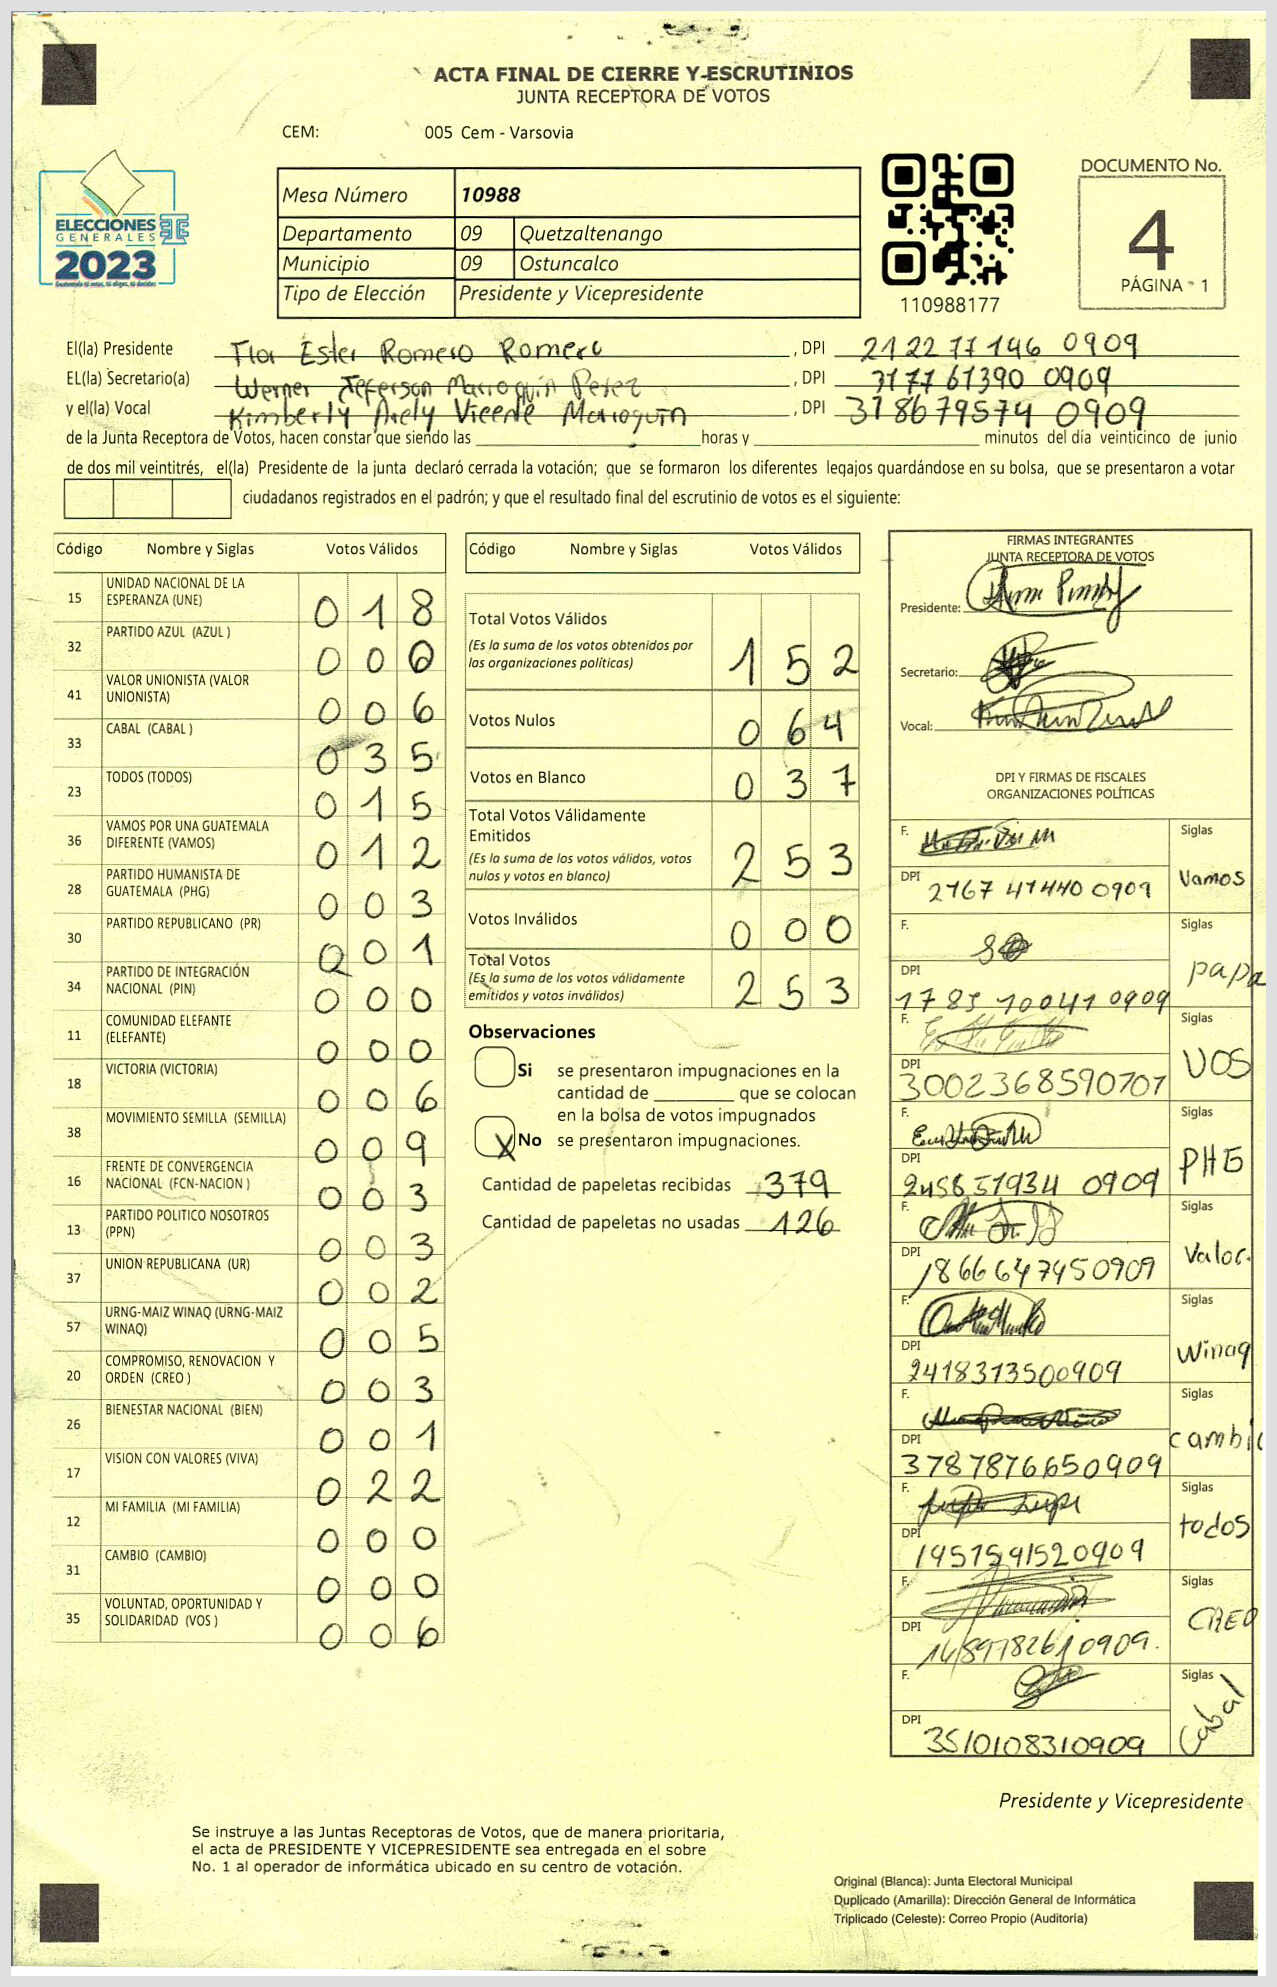 ACTA FINAL DE CIERRE Y ESCRUTINIOS
JUNTA RECEPTORA DE VOTOS
CEM: 005 Cem - Varsovia
ELECCIONES
GENERALES
2023
Mesa Número 10988
Departamento 09 Quetzaltenango
Municipio 09 Ostuncalco
Tipo de Elección Presidente y Vicepresidente
110988177
DOCUMENTO No.
4
PÁGINA 1
El(la) Presidente Flor Ester Romero Romero , DPI 2122 77146 0909
EL(la) Secretario(a) Werner Jeferson Marroquín Perez , DPI 3177 61390 0909
y el(la) Vocal Kimberly Arely Vicente Marroquín , DPI 3186 79574 0909
de la Junta Receptora de Votos, hacen constar que siendo las horas y minutos del día veinticinco de junio
de dos mil veintitrés, el(la) Presidente de la junta declaró cerrada la votación; que se formaron los diferentes legajos guardándose en su bolsa, que se presentaron a votar
ciudadanos registrados en el padrón; y que el resultado final del escrutinio de votos es el siguiente:
Código Nombre y Siglas Votos Válidos
15 UNIDAD NACIONAL DE LA
ESPERANZA (UNE) 018
32 PARTIDO AZUL (AZUL ) 000
41 VALOR UNIONISTA (VALOR
UNIONISTA) 006
33 CABAL (CABAL ) 035
23 TODOS (TODOS) 015
36 VAMOS POR UNA GUATEMALA
DIFERENTE (VAMOS) 012
28 PARTIDO HUMANISTA DE
GUATEMALA (PHG) 003
30 PARTIDO REPUBLICANO (PR) 001
34 PARTIDO DE INTEGRACIÓN
NACIONAL (PIN) 000
11 COMUNIDAD ELEFANTE
(ELEFANTE) 000
18 VICTORIA (VICTORIA) 006
38 MOVIMIENTO SEMILLA (SEMILLA) 009
16 FRENTE DE CONVERGENCIA
NACIONAL (FCN-NACION ) 003
13 PARTIDO POLITICO NOSOTROS
(PPN) 003
37 UNION REPUBLICANA (UR) 002
57 URNG-MAIZ WINAQ (URNG-MAIZ
WINAQ) 005
20 COMPROMISO, RENOVACION Y
ORDEN (CREO ) 003
26 BIENESTAR NACIONAL (BIEN) 001
17 VISION CON VALORES (VIVA) 022
12 MI FAMILIA (MI FAMILIA) 000
31 CAMBIO (CAMBIO) 000
35 VOLUNTAD, OPORTUNIDAD Y
SOLIDARIDAD (VOS ) 006
Código Nombre y Siglas Votos Válidos
Total Votos Válidos
(Es la suma de los votos obtenidos por
las organizaciones políticas) 152
Votos Nulos 064
Votos en Blanco 037
Total Votos Válidamente
Emitidos
(Es la suma de los votos válidos, votos
nulos y votos en blanco) 253
Votos Inválidos 000
Total Votos
(Es la suma de los votos válidamente
emitidos y votos inválidos) 253
Observaciones
Si se presentaron impugnaciones en la
cantidad de que se colocan
en la bolsa de votos impugnados
X No se presentaron impugnaciones.
Cantidad de papeletas recibidas 379
Cantidad de papeletas no usadas 126
FIRMAS INTEGRANTES
JUNTA RECEPTORA DE VOTOS
Presidente:
Secretario:
Vocal:
DPI Y FIRMAS DE FISCALES
ORGANIZACIONES POLÍTICAS
F. Siglas
DPI 2767 41440 0909 Vamos
F. Siglas
DPI 1785 10041 0909 papa
F. Siglas
DPI 3002368590707 VOS
F. Siglas
DPI 2458 51934 0909 PHG
F. Siglas
DPI 1866647450909 Valor.
F. Siglas
DPI 2418313500909 Winaq
F. Siglas
DPI 3787876650909 cambio
F. Siglas
DPI 1957591520909 todos
F. Siglas
DPI 1489782610909. CREO
F. Siglas
DPI 3510108310909 Cabal
Presidente y Vicepresidente
Se instruye a las Juntas Receptoras de Votos, que de manera prioritaria,
el acta de PRESIDENTE Y VICEPRESIDENTE sea entregada en el sobre
No. 1 al operador de informática ubicado en su centro de votación.
Original (Blanca): Junta Electoral Municipal
Duplicado (Amarilla): Dirección General de Informática
Triplicado (Celeste): Correo Propio (Auditoría)